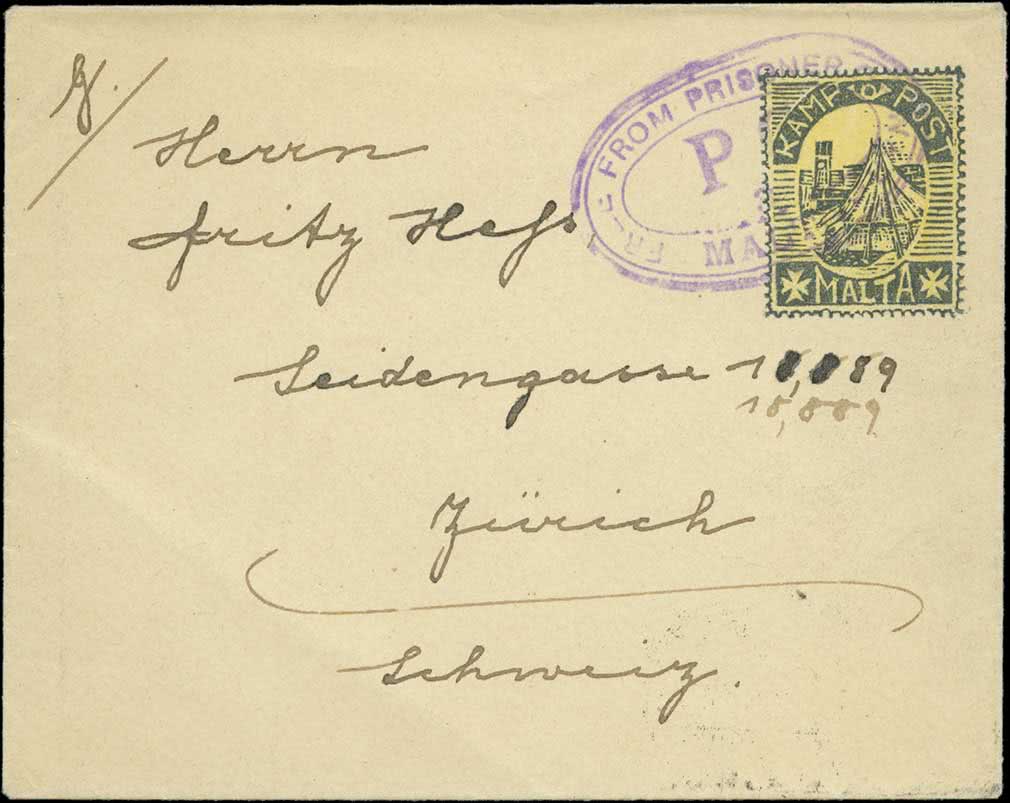 Herrn
Fritz Hess
Seidengasse
10,889
Zürich
Schweiz.
FROM PRISONER
P
MA
KAMP POST
MALTA